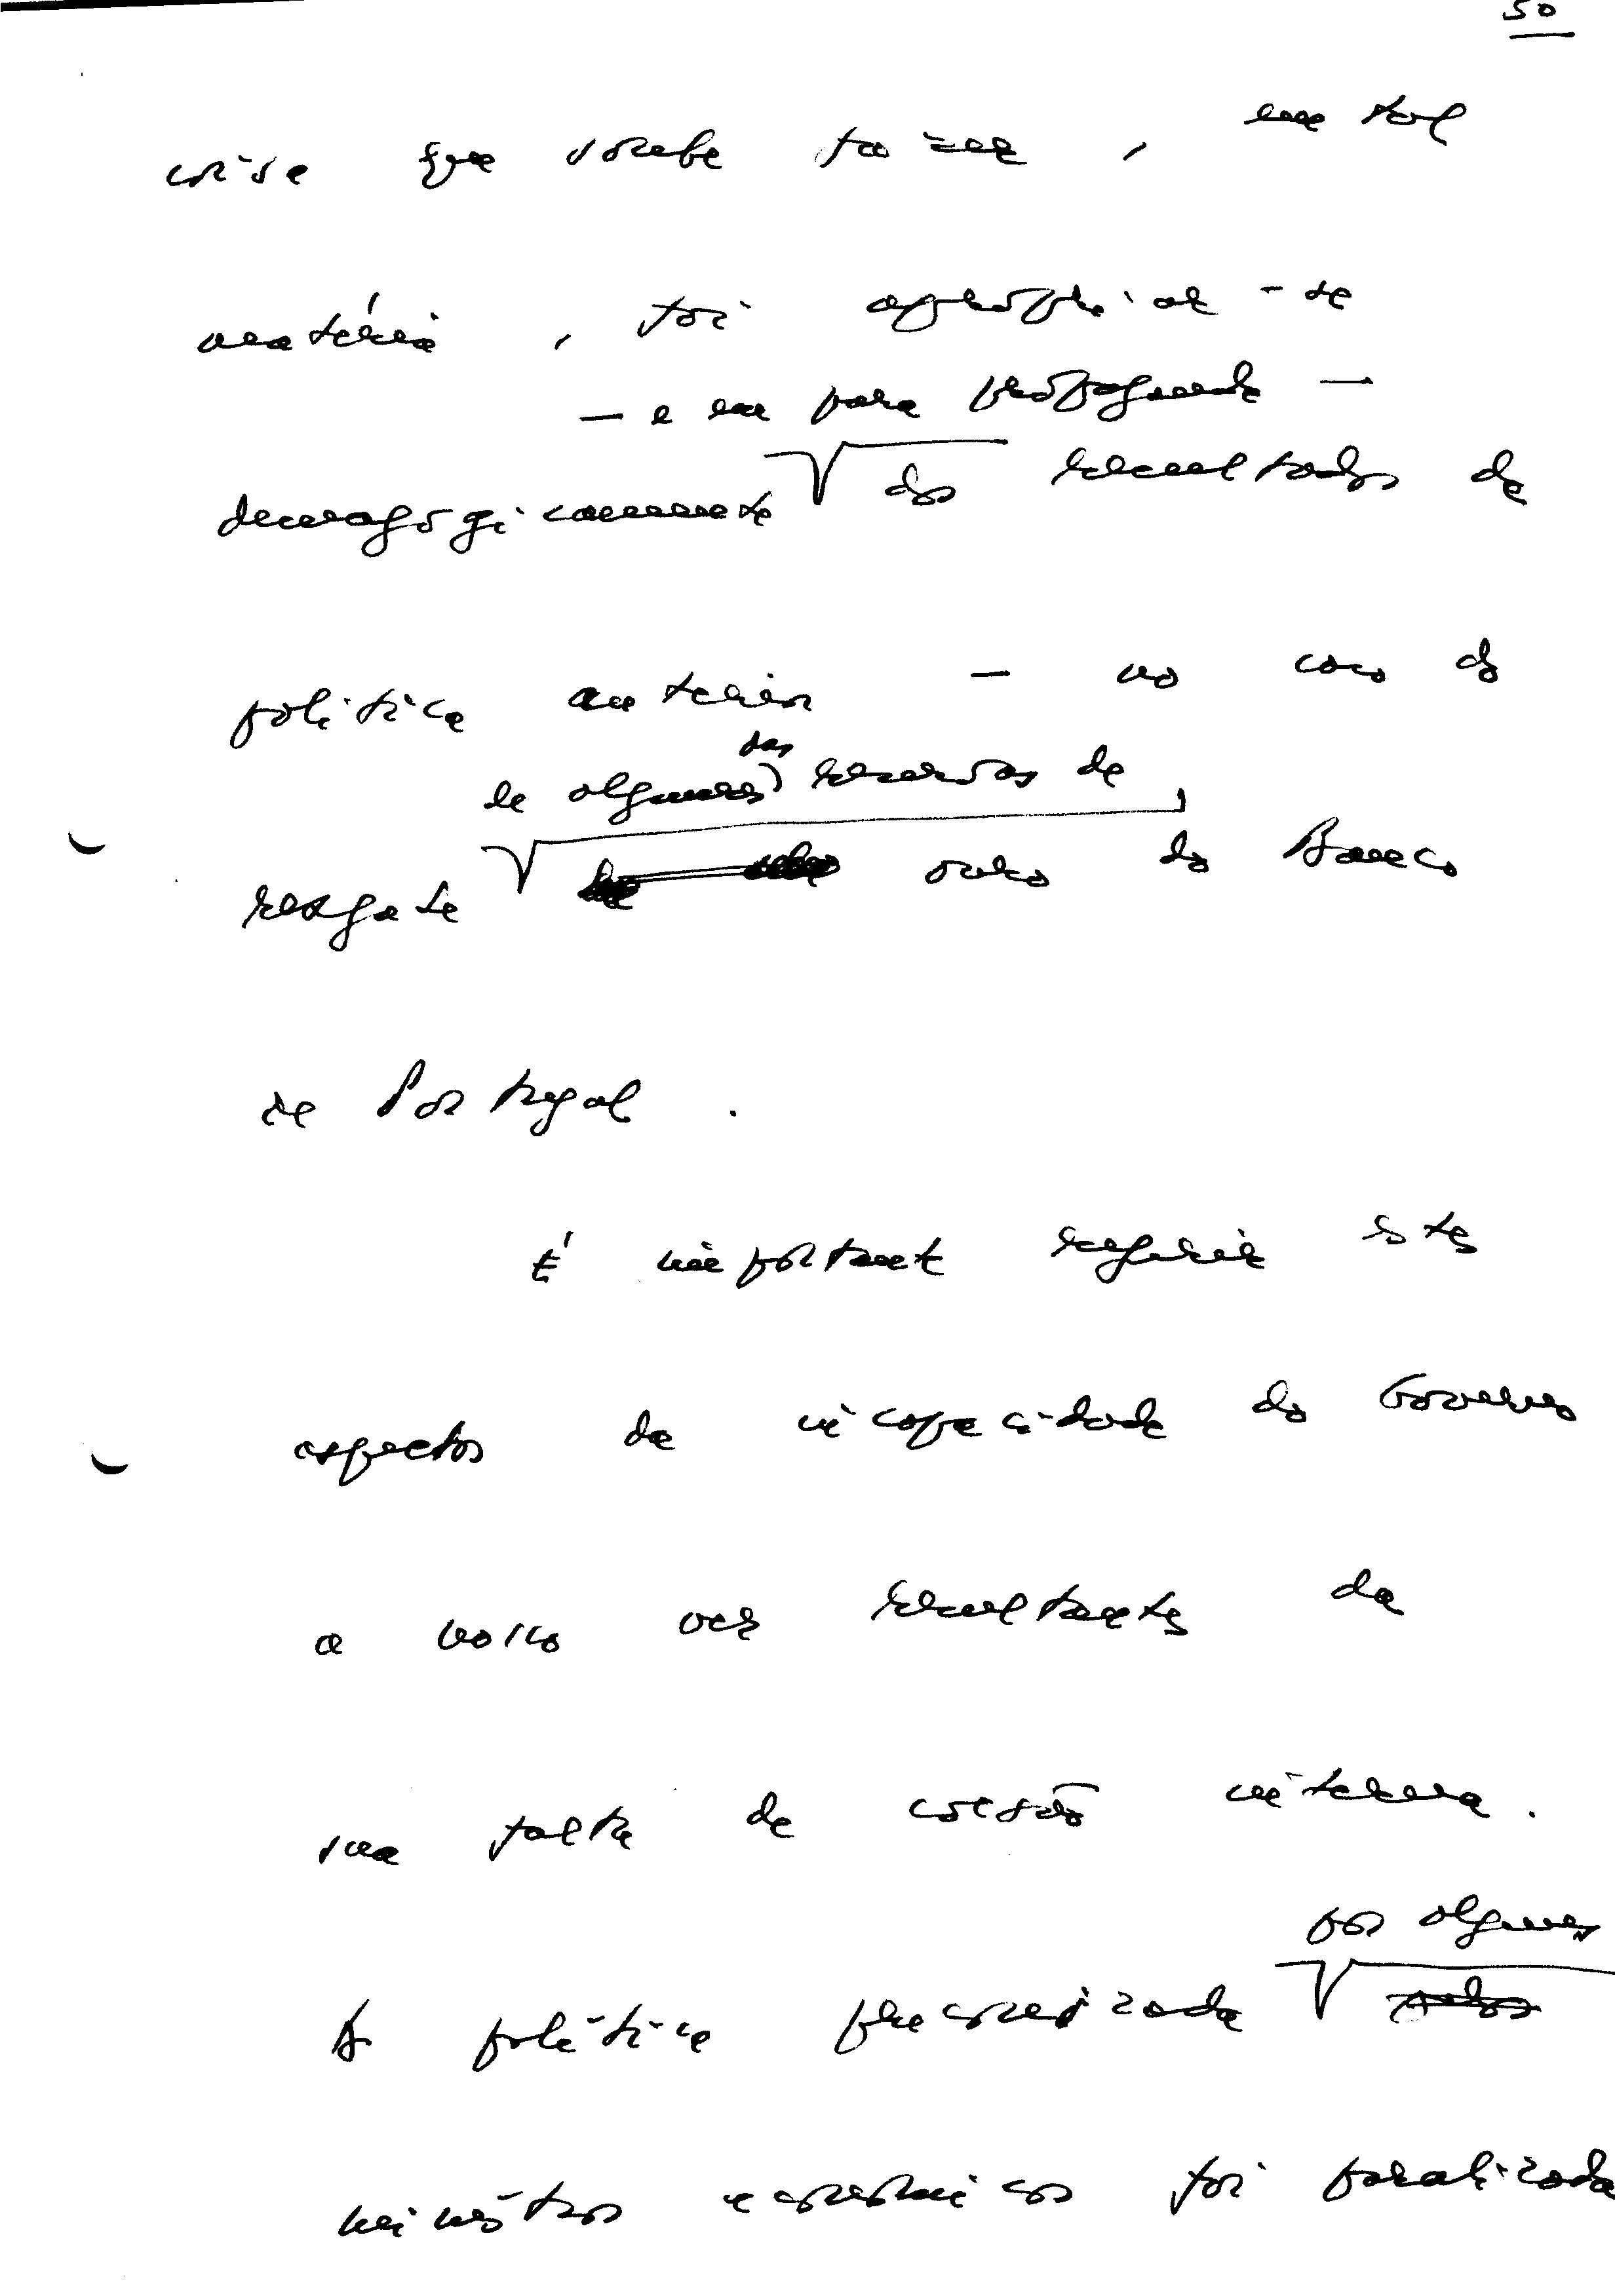 50
crise que soube fazer, em tal
matéria, foi apropriar-se
— e em para propaganda —
demagògicamente dos resultados de
política anterior — no caso do
das
de algumas reservas de
resgate ouro do Banco
de Portugal.
É importante referir estes
aspectos da incapacidade do Governo
a nosso ver resultantes da
sua falta de coesão interna.
por alguns
A política preconizada pelos
ministros económicos foi paralizada